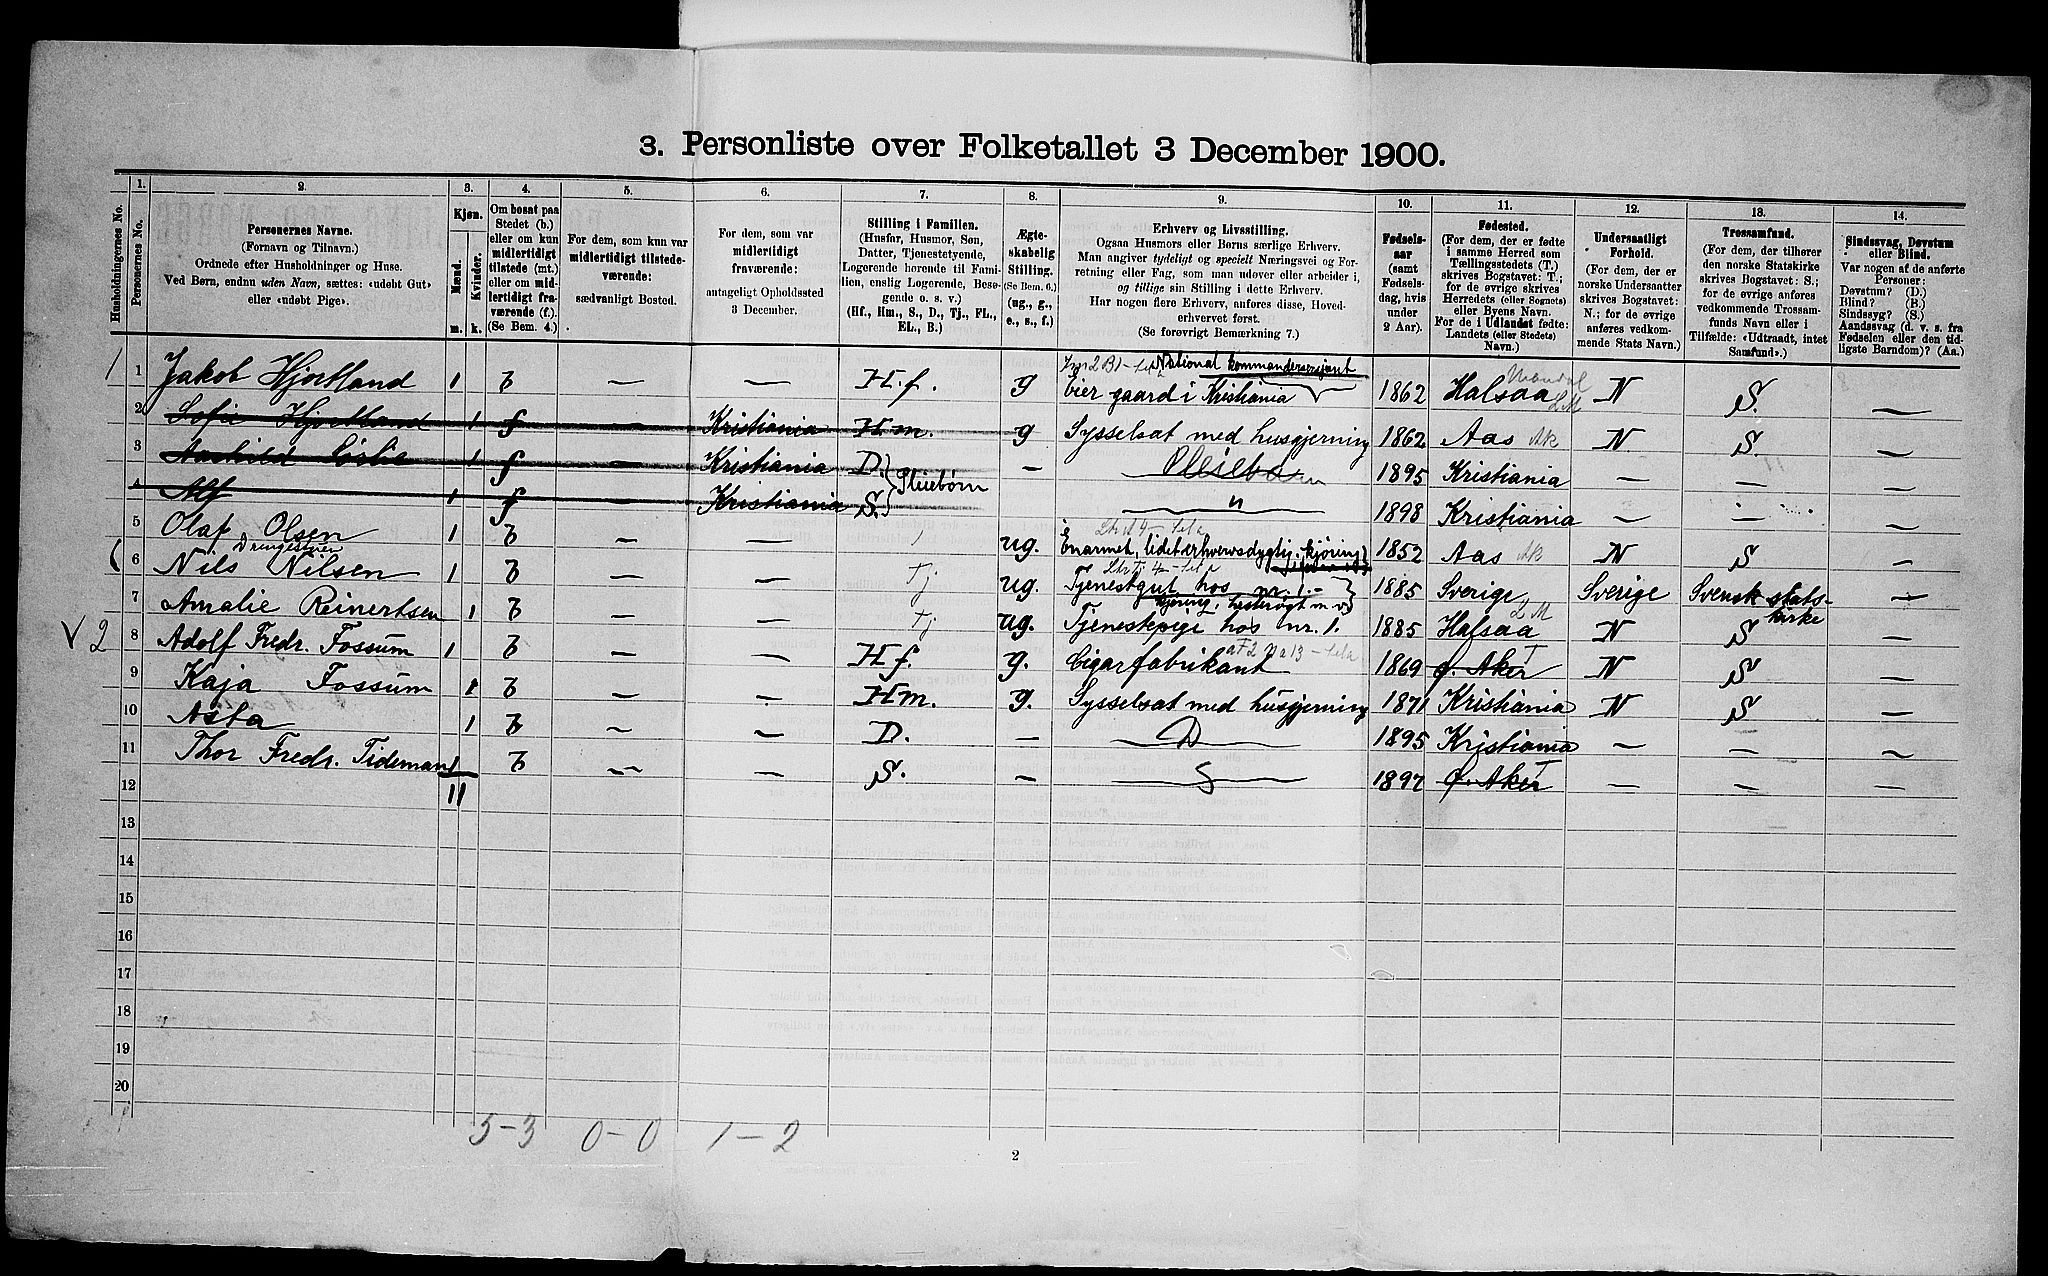 3. Personliste over Folketallet 3 December 1900.
Husholdningernes No.
1.
Personernes No.
2.
Personernes Navne.
(Fornavn og Tilnavn.)
Ordnede efter Husholdninger og Huse.
Ved Børn, endnu uden Navn, sættes: «udøbt Gut»
eller «udøbt Pige».
3.
Kjøn.
Mænd.
Kvinder.
m.
k.
4.
Om bosat paa
Stedet (b.)
eller om kun
midlertidigt
tilstede (mt.)
eller om mid-
lertidigt fra-
værende (f.).
(Se Bem. 4.)
5.
For dem, som kun var
midlertidigt tilstede-
værende:
sædvanligt Bosted.
6.
For dem, som var
midlertidigt
fraværende:
antageligt Opholdssted
3 December.
7.
Stilling i Familien.
(Husfar, Husmor, Søn,
Datter, Tjenestetyende,
Logerende hørende til Fami-
lien, enslig Logerende, Besø-
gende o. s. v.)
(Hf., Hm., S., D., Tj., FL.,
EL., B.)
8.
Ægte-
skabelig
Stilling.
(Se Bem. 6.)
(ug., g.,
e., s., f.)
9.
Erhverv og Livsstilling.
Ogsaa Husmors eller Børns særlige Erhverv.
Man angiver tydeligt og specielt Næringsvei og For-
retning eller Fag, som man udøver eller arbeider i,
og tillige sin Stilling i dette Erhverv.
Har nogen flere Erhverv, anføres disse, Hoved-
erhvervet først.
(Se forøvrigt Bemærkning 7.)
10.
Fødsels-
aar
(samt
Fødsels-
dag, hvis
under
2 Aar).
11.
Fødested.
(For dem, der er fødte
i samme Herred som
Tællingsstedets (T.)
skrives Bogstavet: T.;
for de øvrige skrives
Herredets (eller Sognets)
eller Byens Navn.
For de i Udlandet fødte:
Landets (eller Stedets)
Navn.)
12.
Undersaatligt
Forhold.
(For dem, der er
norske Undersaatter
skrives Bogstavet:
N.; for de øvrige
anføres vedkom-
mende Stats Navn.)
13.
Trossamfund.
(For dem, der tilhører
den norske Statskirke
skrives Bogstavet: S.;
for de øvrige anføres
vedkommende Trossam-
funds Navn eller i
Tilfælde: «Udtraadt, intet
Samfund».)
14.
Sindssvag, Døvstum
eller Blind.
Var nogen af de anførte
Personer:
Døvstum? (D.)
Blind? (B.)
Sindssyg? (S.)
Aandssvag (d. v. s. fra
Fødselen eller den tid-
ligste Barndom)? (Aa.)
National kommandersersjant
1 1 Jakob Hjortland 1 b — — H.f. g Eier gaard i Kristiania 1862 Halsaa L M N S. —
2 Sofie Hjortland 1 f — Kristiania H.m. g Sysselsat med husgjerning 1862 Aas Ak N S. —
3 1 f — Kristiania D. Pleiebørn — 1895 Kristiania — — —
4 Alf 1 f — Kristiania S. " 1898 Kristiania — — —
5 Olaf Olsen 1 b — — ug. Enarmet, lidet erhvervsdygtig. kjøring 1852 Aas Ak N S —
6 Nils Nilsen 1 b — — Tj. ug. Tjenestgut hos nr. 1. — 1885 Sverige Sverige Svensk stats-
kirke —
kjøring, hesterøgt m v
7 Amalie Reinertsen 1 b — — Tj. ug. Tjenestepige hos nr. 1. 1885 Halsaa L M N S —
V 2 8 Adolf Fredr. Fossum 1 b — — H f. g. Cigarfabrikant 1869 Ø. Aker T N S —
9 Kaja Fossum 1 b — — Hm. g. Sysselsat med husgjerning 1871 Kristiania N S —
10 Asta 1 b — — D. — D 1895 Kristiania — — —
11 Thor Fredr. Tideman 1 b — — S. — S 1897 Ø. Aker T — — —
12 11
13
14
15
16
17
18
19
20
5-3 0-0 1-2
2